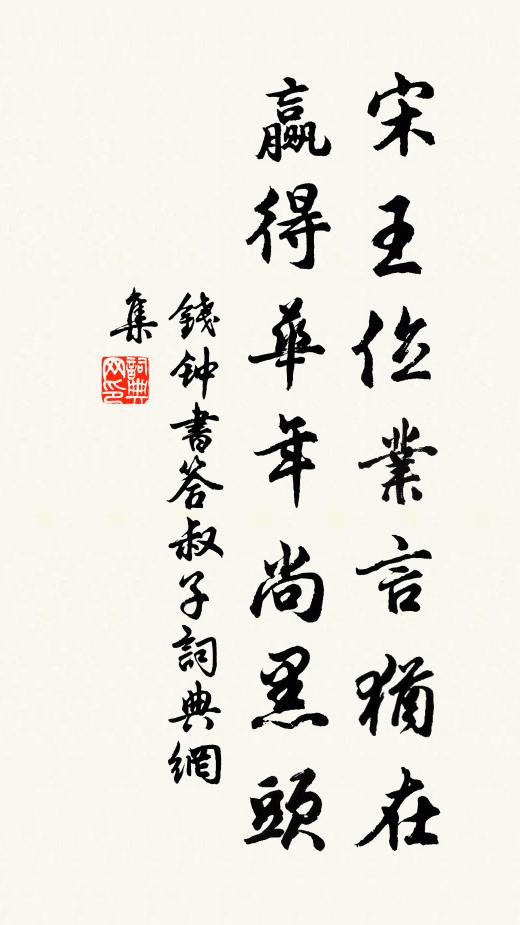 宋王位業言猶在
贏得華年尚黑頭
錢钟書答叔子詞典網
集
詞典
网印